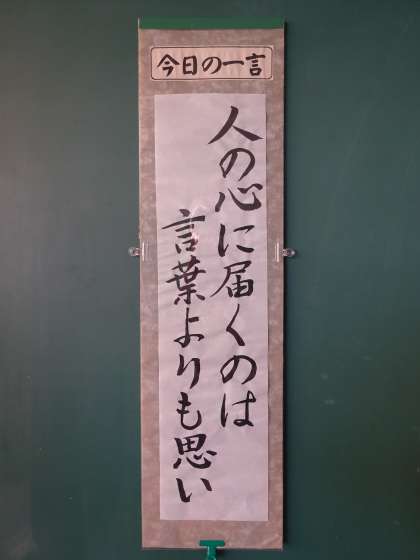 今日の一言
人の心に届くのは
言葉よりも思い